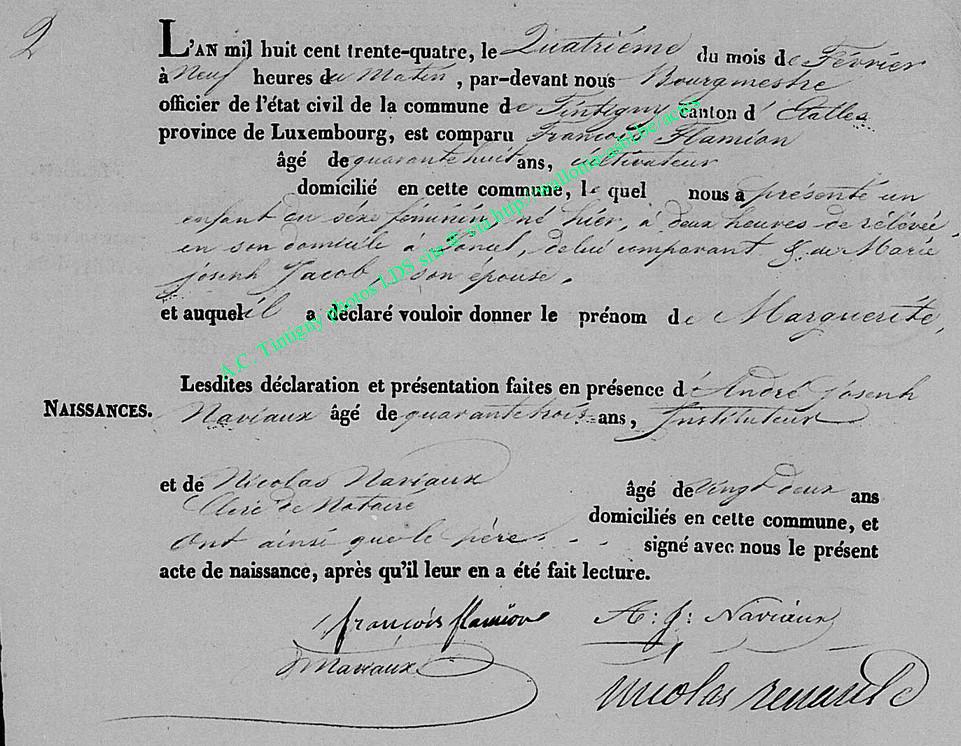 2
L'AN mil huit cent trente-quatre, le Quatriéme du mois de Février
à Neuf heures du Matin, par-devant nous Bourgmestre
officier de l'état civil de la commune de Tintigny canton d'Etalle
province de Luxembourg, est comparu François Flamion
âgé de quarante huit ans, cultivateur
domicilié en cette commune, le quel nous a présenté un
enfant du séxe féminin, né hier, à deux heures de rélévée,
en son domicile à , de lui comparant & de Marie
joseph Jacob, son épouse.
et auquel il a déclaré vouloir donner le prénom de Marguerite,
Lesdites déclaration et présentation faites en présence d'André Joseph
NAISSANCES. Naviaux âgé de quarante trois ans, Instituteur
et de Nicolas Naviaux âgé de vingt deux ans
Clerc de Notaire domiciliés en cette commune, et
Ont ainsi que le père signé avec nous le présent
acte de naissance, après qu'il leur en a été fait lecture.
françois flamion A: J: Naviaux
Naviaux
nicolas
A.C. Tintigny photos LDS site © via http://